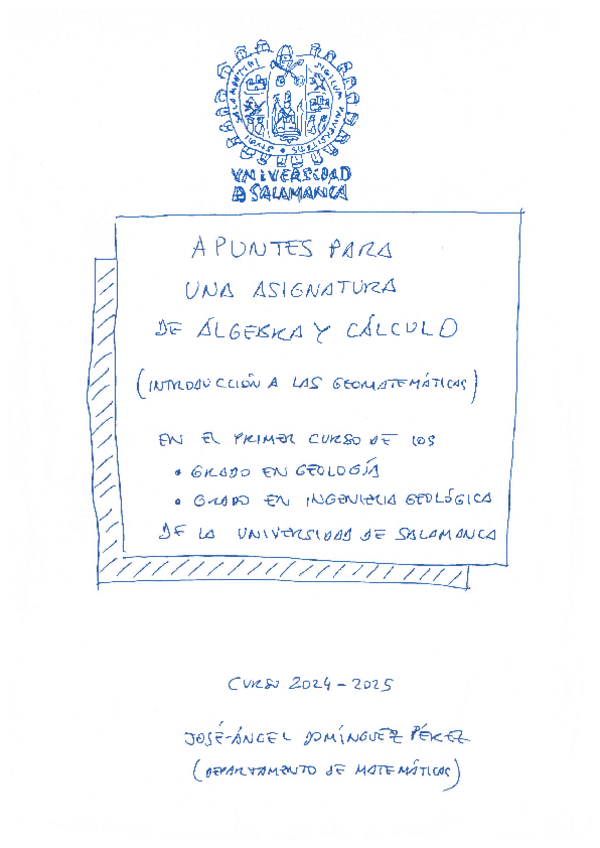 SIGILLUM UNIVERSITATIS STUDII SALAMANTINI
UNIVERSIDAD
D SALAMANCA
APUNTES PARA
UNA ASIGNATURA
DE ÁLGEBRA Y CÁLCULO
(INTRODUCCIÓN A LAS GEOMATEMÁTICAS)
EN EL PRIMER CURSO DE LOS
• GRADO EN GEOLOGÍA
• GRADO EN INGENIERIA GEOLÓGICA
DE LA UNIVERSIDAD DE SALAMANCA
CURSO 2024-2025
JOSÉ-ÁNGEL DOMÍNGUEZ PÉREZ
(DEPARTAMENTO DE MATEMÁTICAS)